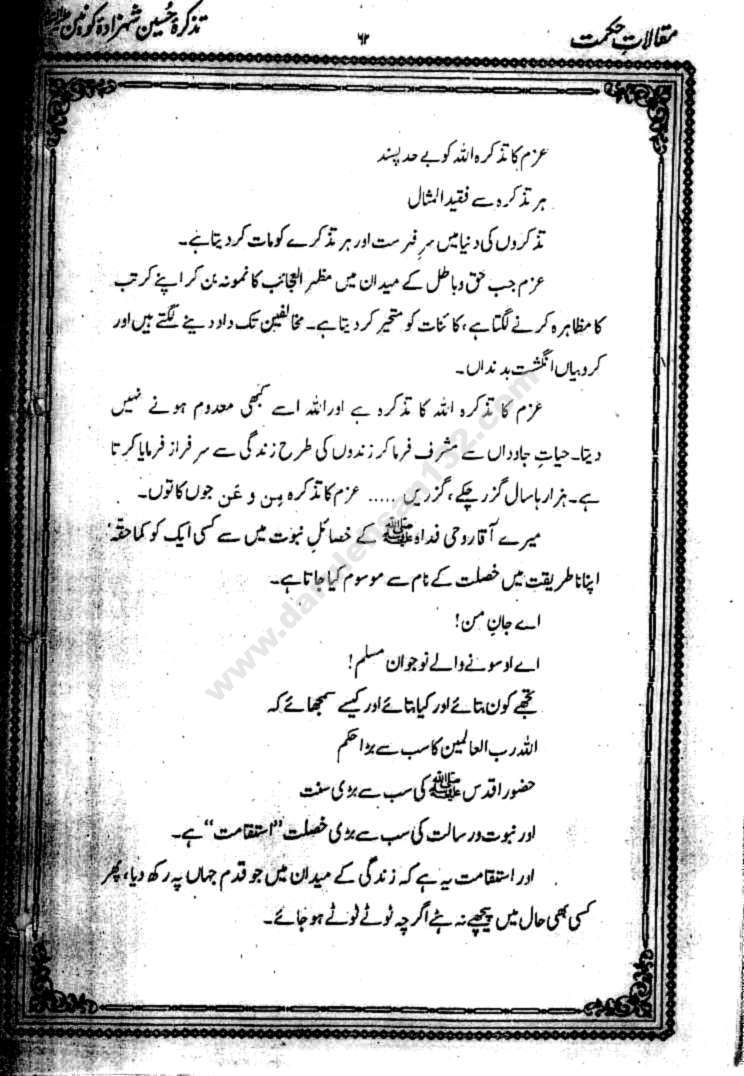 مقالاتِ حکمت
۶۲
تذکرۂ حُسین شہزادۂ کونین
عزم کا تذکرہ اللہ کو بے حد پسند
ہر تذکرہ سے فقید المثال
تذکروں کی دنیا میں سرِ فہرست اور ہر تذکرے کو مات کر دیتا ہے۔
عزم جب حق و باطل کے میدان میں مظہر العجائب کا نمونہ بن کر اپنے کرتب
کا مظاہرہ کرنے لگتا ہے، کائنات کو متحیر کر دیتا ہے۔ مخالفین تک داد دینے لگتے ہیں اور
کروبیاں انگشت بدنداں۔
عزم کا تذکرہ اللہ کا تذکرہ ہے اور اللہ اسے کبھی معدوم ہونے نہیں
دیتا۔ حیاتِ جاوداں سے مشرف فرما کر زندوں کی طرح زندگی سے سرفراز فرمایا کرتا
ہے۔ ہزارہا سال گزر چکے، گزریں ..... عزم کا تذکرہ مِن و عَن جوں کا توں۔
میرے آقا روحی فداہ ﷺ کے خصائلِ نبوت میں سے کسی ایک کو کماحقہٗ
اپنانا طریقت میں خصلت کے نام سے موسوم کیا جاتا ہے۔
اے جانِ من!
اے او سونے والے نوجوان مسلم!
تجھے کون بتائے اور کیا بتائے اور کیسے سمجھائے کہ
اللہ رب العالمین کا سب سے بڑا حکم
حضور اقدس ﷺ کی سب سے بڑی سنت
اور نبوت و رسالت کی سب سے بڑی خصلت "استقامت" ہے۔
اور استقامت یہ ہے کہ زندگی کے میدان میں جو قدم جہاں پہ رکھ دیا، پھر
کسی بھی حال میں پیچھے نہ ہٹے اگرچہ ٹوٹے ٹوٹے ہو جائے۔